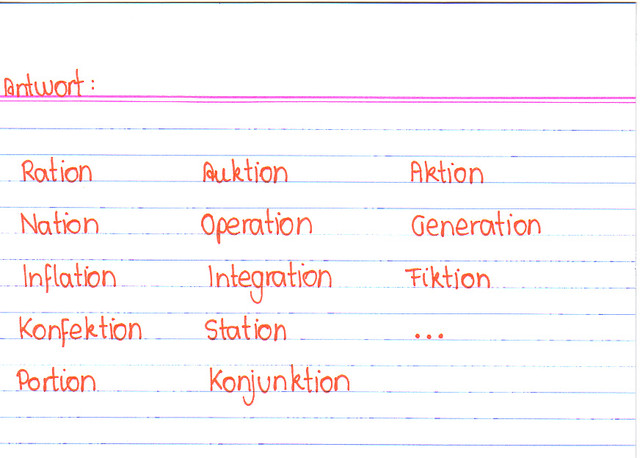 Antwort:
Ration Auktion Aktion
Nation Operation Generation
Inflation Integration Fiktion
Konfektion Station ...
Portion Konjunktion